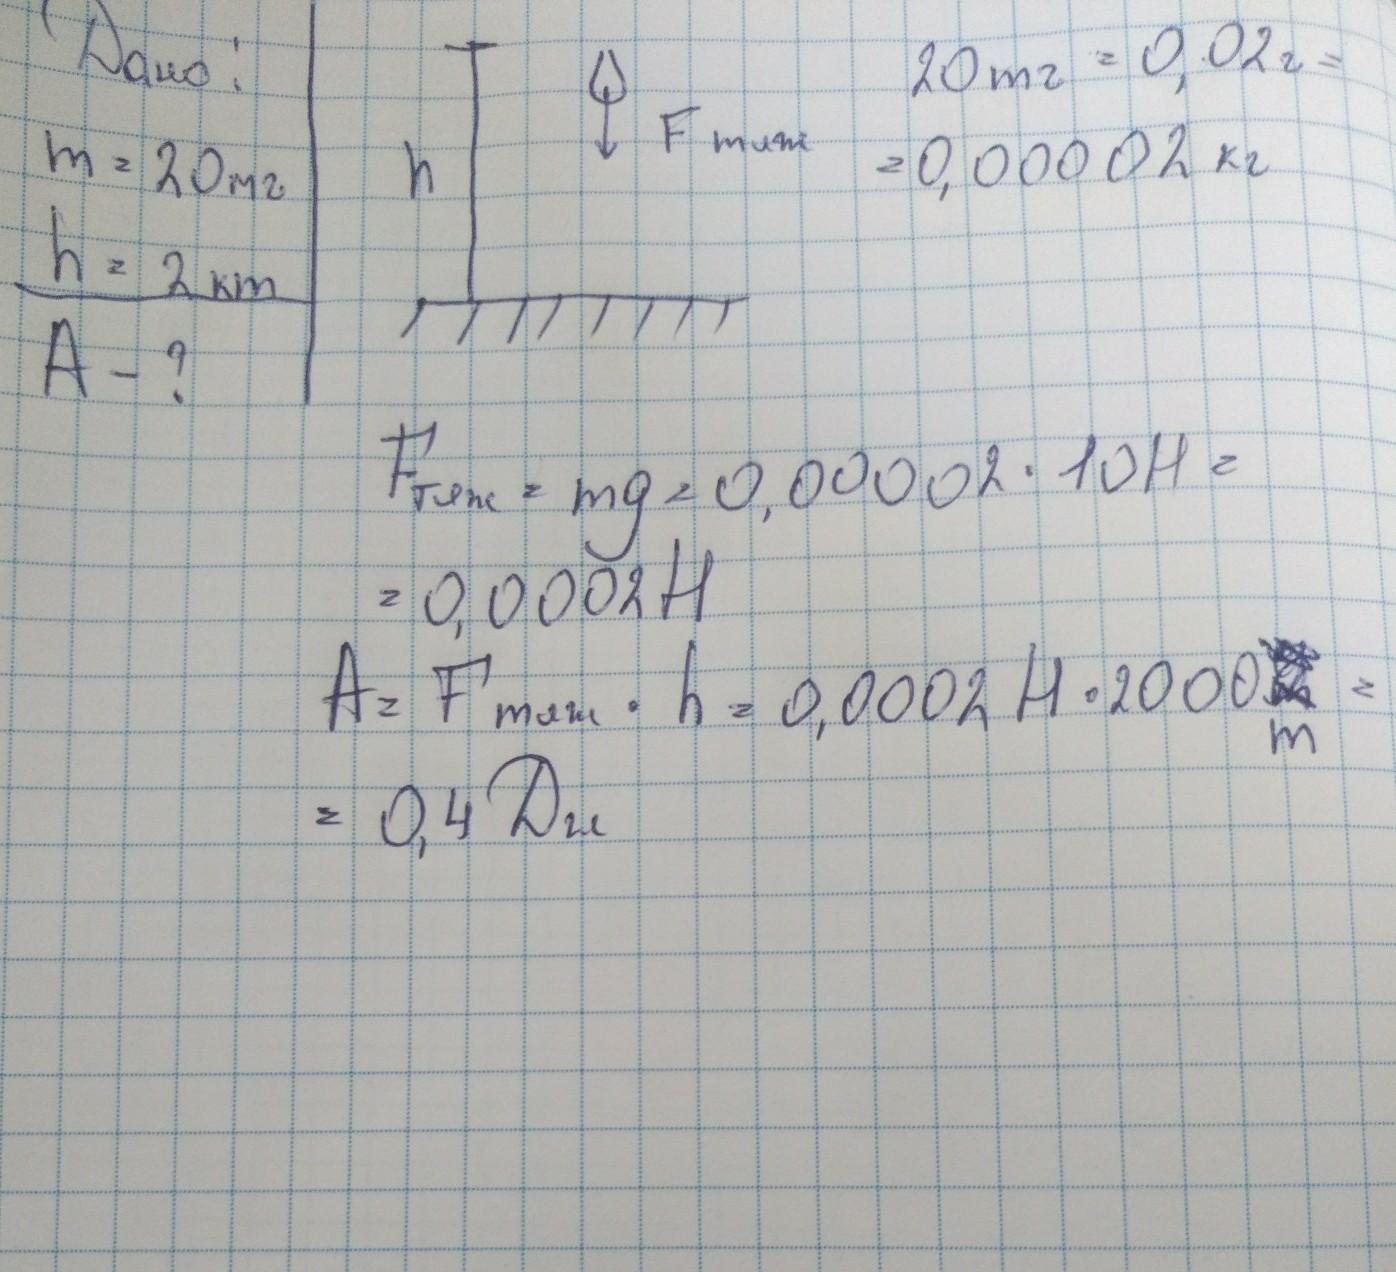 Дано:
m = 20мг
h = 2 км
A - ?
h
Fтяж
20мг = 0,02г =
= 0,00002 кг
Fтяж = mg = 0,00002 · 10Н =
= 0,0002Н
A = Fтяж · h = 0,0002 Н · 2000 м =
= 0,4 Дж